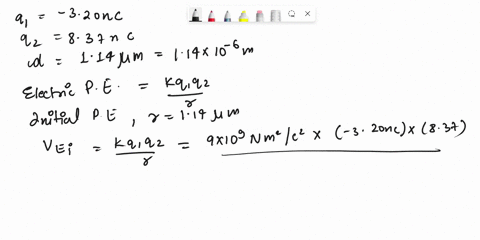 q₁ = -3.20nc
q₂ = 8.37 n c
d = 1.14 μm = 1.14 × 10⁻⁶ m
Electric P.E. = kq₁q₂/r
Initial P.E , r = 1.14 μm
V_Ei = kq₁q₂/r = 9×10⁹ Nm²/c² × (-3.20nc) × (8.37)